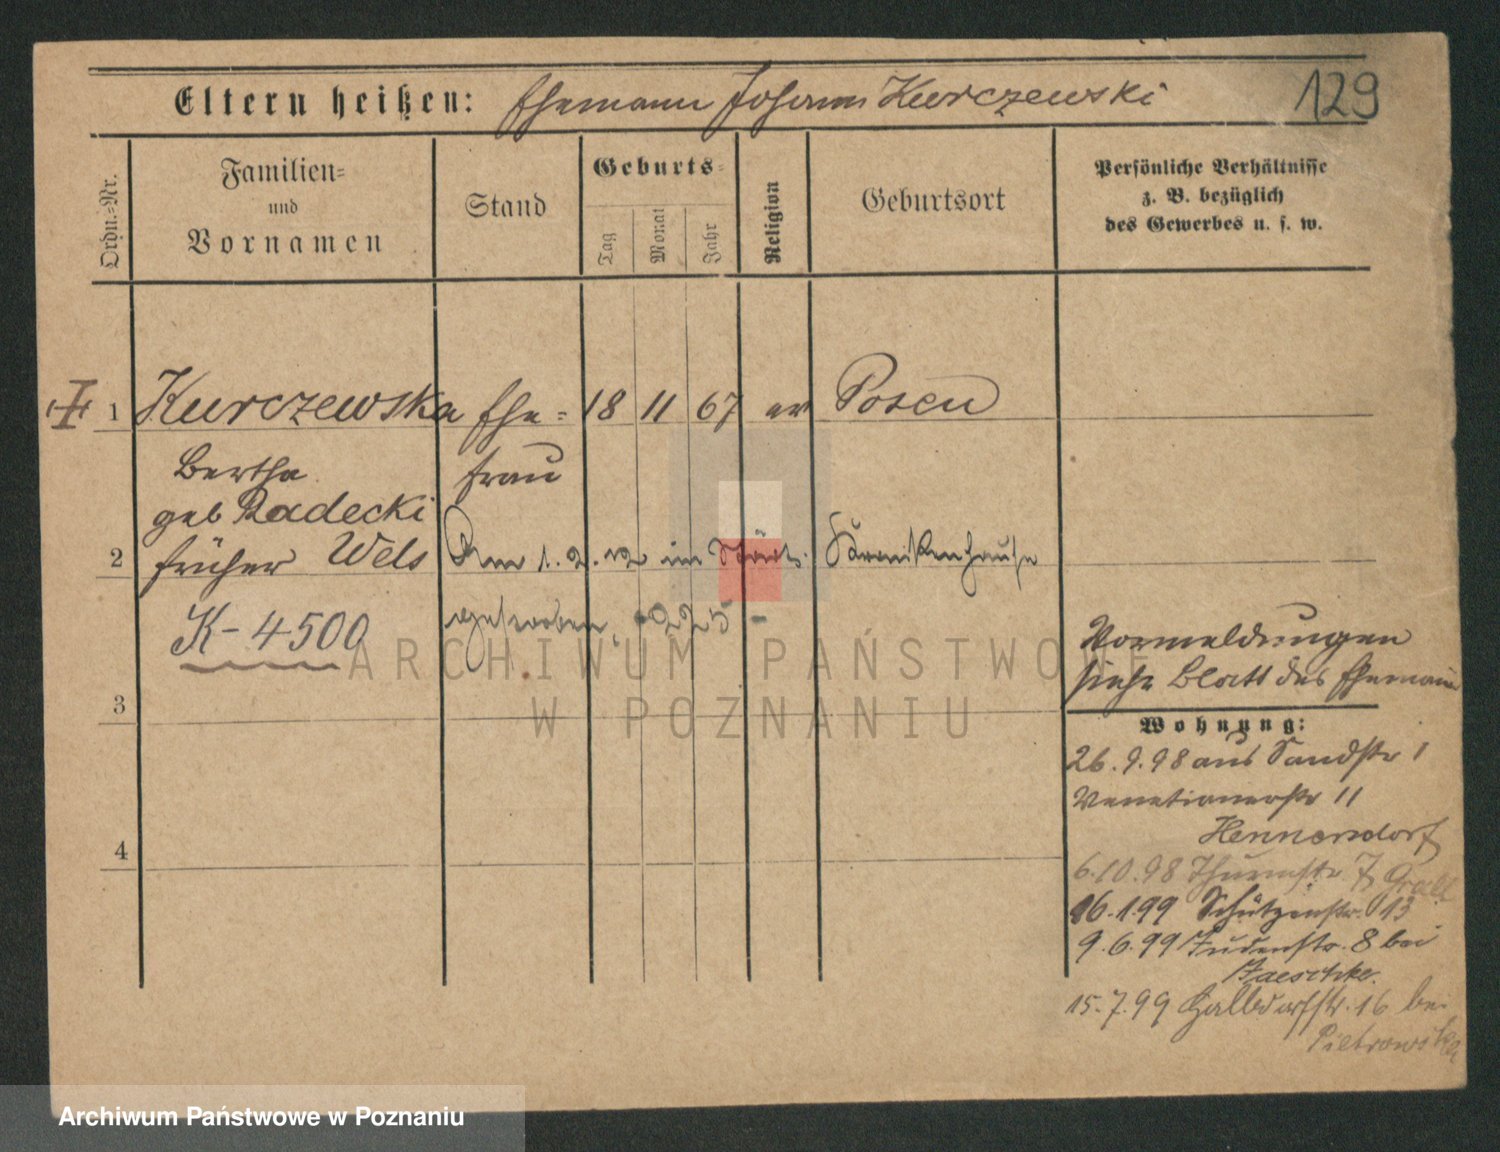 Eltern heißen: Ehemann Johann Kurczewski
129
Ordn.=Nr.
Familien=
und
Vornamen
Stand
Geburts=
Tag
Monat
Jahr
Religion
Geburtsort
Persönliche Verhältnisse
z. B. bezüglich
des Gewerbes u. s. w.
1 Kurczewska Ehe= 18 11 67 ev Posen
Bertha frau
geb Radecki
2 früher Wels Am 1. 2. 12 im Städt. Krankenhause
K- 4500 gestorben, 225
3
4
Vormeldungen
siehe Blatt des Ehemann
Wohnung:
26. 9. 98 aus Sandstr 1
Venetianerstr 11
Hennersdorf
6. 10. 98 Thurmstr 7
16. 1. 99 Schützenstr. 13
9. 6. 99 Judenstr. 8 bei
Jaeschke.
15. 7. 99 Halldorfstr. 16 bei
Pietrowska
ARCHIWUM PAŃSTWOWE
W POZNANIU
Archiwum Państwowe w Poznaniu